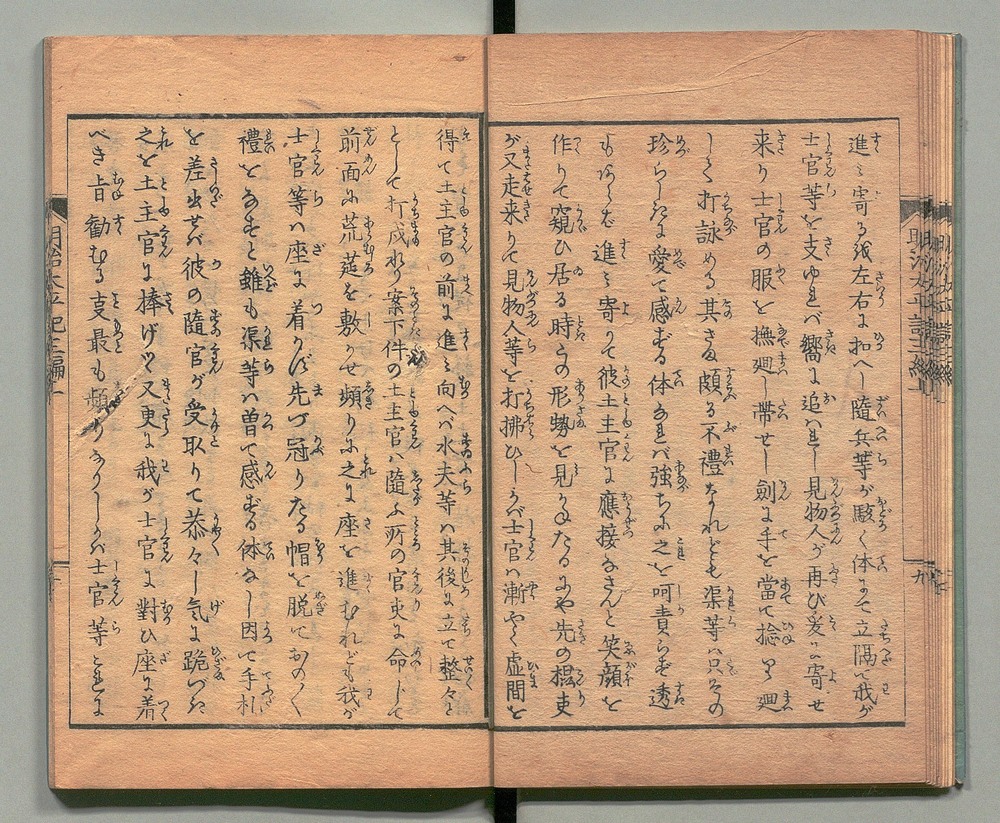 進ミ寄るを左右に扣へし隨兵等が駭く体にて立隔て我が
士官等を支ゆれバ嚮に追はれし見物人が再び爰に寄せ
来り士官の服を撫廻し帯せし劔に手を當て捻り廻
して打詠める其さま頗る不禮なれども渠等ハ只その
珍らしきに愛て感ずる体なれバ強ちに之を呵責らず透
もあらせず進ミ寄りて彼土主官に應接なさんと笑顔を
作りて窺ひ居る時この形勢を見かねたるにや先の棍吏
が又走来りて見物人等を打拂ひしかバ士官ハ漸やく虚間を
得て土主官の前に進ミ向へバ水夫等ハ其後に立て整々
として打戍れり案下件の土主官ハ隨ふ所の官吏に命じて
前面に荒莚を敷かせ頻りに之に座を進むれども我が
士官等ハ座に着かず先づ冠りたる帽を脱ておの〳〵
禮をなすと雖も渠等ハ曽て感ずる体なし因て手札
を差出せバ彼の隨官が受取りて恭々し気に跪づき
之を土主官に捧げつ又更に我が士官に對ひ座に着
べき旨勸むる支最も頻りなりしかバ士官等これに
明治太平記三編
九